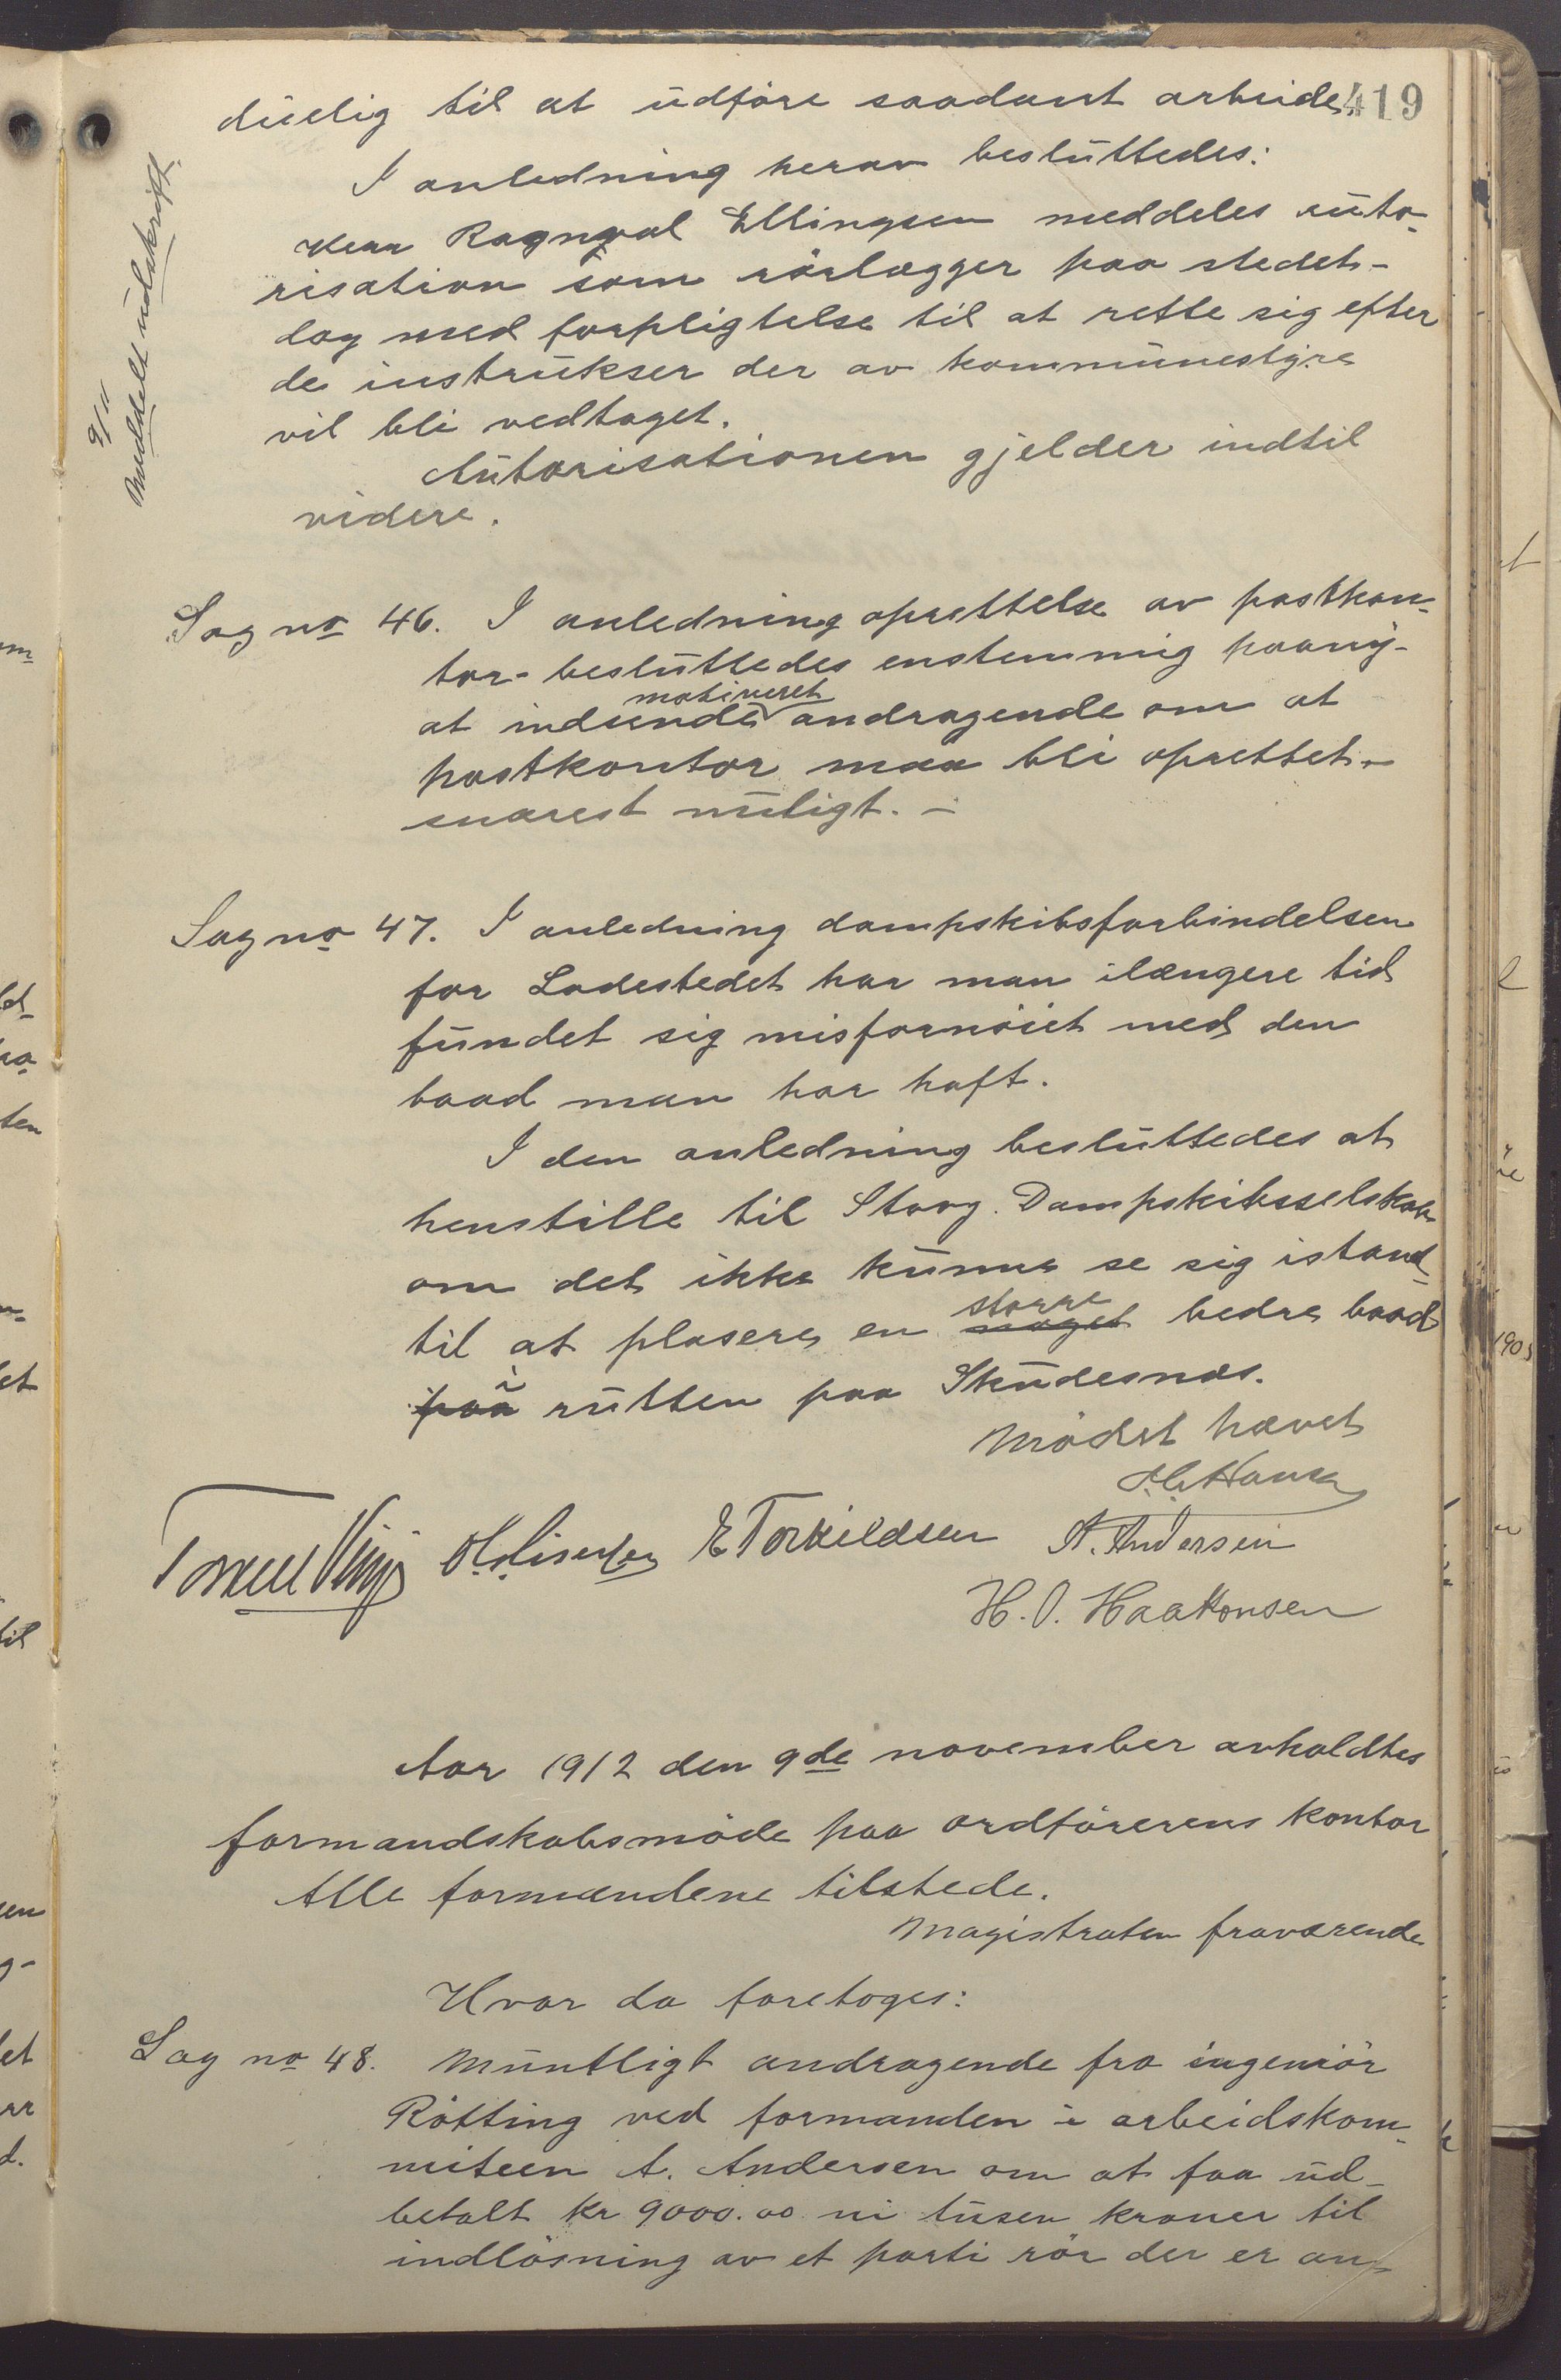 419
duelig til at udføre saadant arbeide.
I anledning herav besluttedes:
Herr Ragnval Ellingsen meddeles auto-
risation som rørlægger paa stedet-
dog med forpligtelse til at rette sig efter
de instrukser der av kommunestyre
vil bli vedtaget.
Autorisationen gjelder indtil
videre.
9/11
Meddelt utskrift.
Sag no 46. I anledning oprettelse av postkon-
tor- besluttedes enstemmig paany-
motiveret
at indsende andragende om at
postkontor maa bli oprettet-
snarest muligt. -
Sag no 47. I anledning dampskibsforbindelsen
for Ladestedet har man ilængere tid
fundet sig misfornøiet med den
baad man har haft.
I den anledning besluttedes at
henstille til Stavg. Dampskibsselskab
om det ikke kunne se sig istand-
større
til at plasere en noget bedre baad
i
paa rutten paa Skudesnes.
Mødet hævet
E Torkildsen A. Andersen
H. O. Haakonsen
Aar 1912 den 9de november avholdtes
formandskabsmøde paa ordførerens kontor
Alle formændene tilstede.
Magistraten fraværende
Hvor da foretoges:
Sag no 48. Muntligt andragende fra ingeniør
Røtting ved formanden i arbeidskom-
miteen A. Andersen om at faa ud-
betalt kr 9000.00 ni tusen kroner til
indløsning av et parti rør der er an-